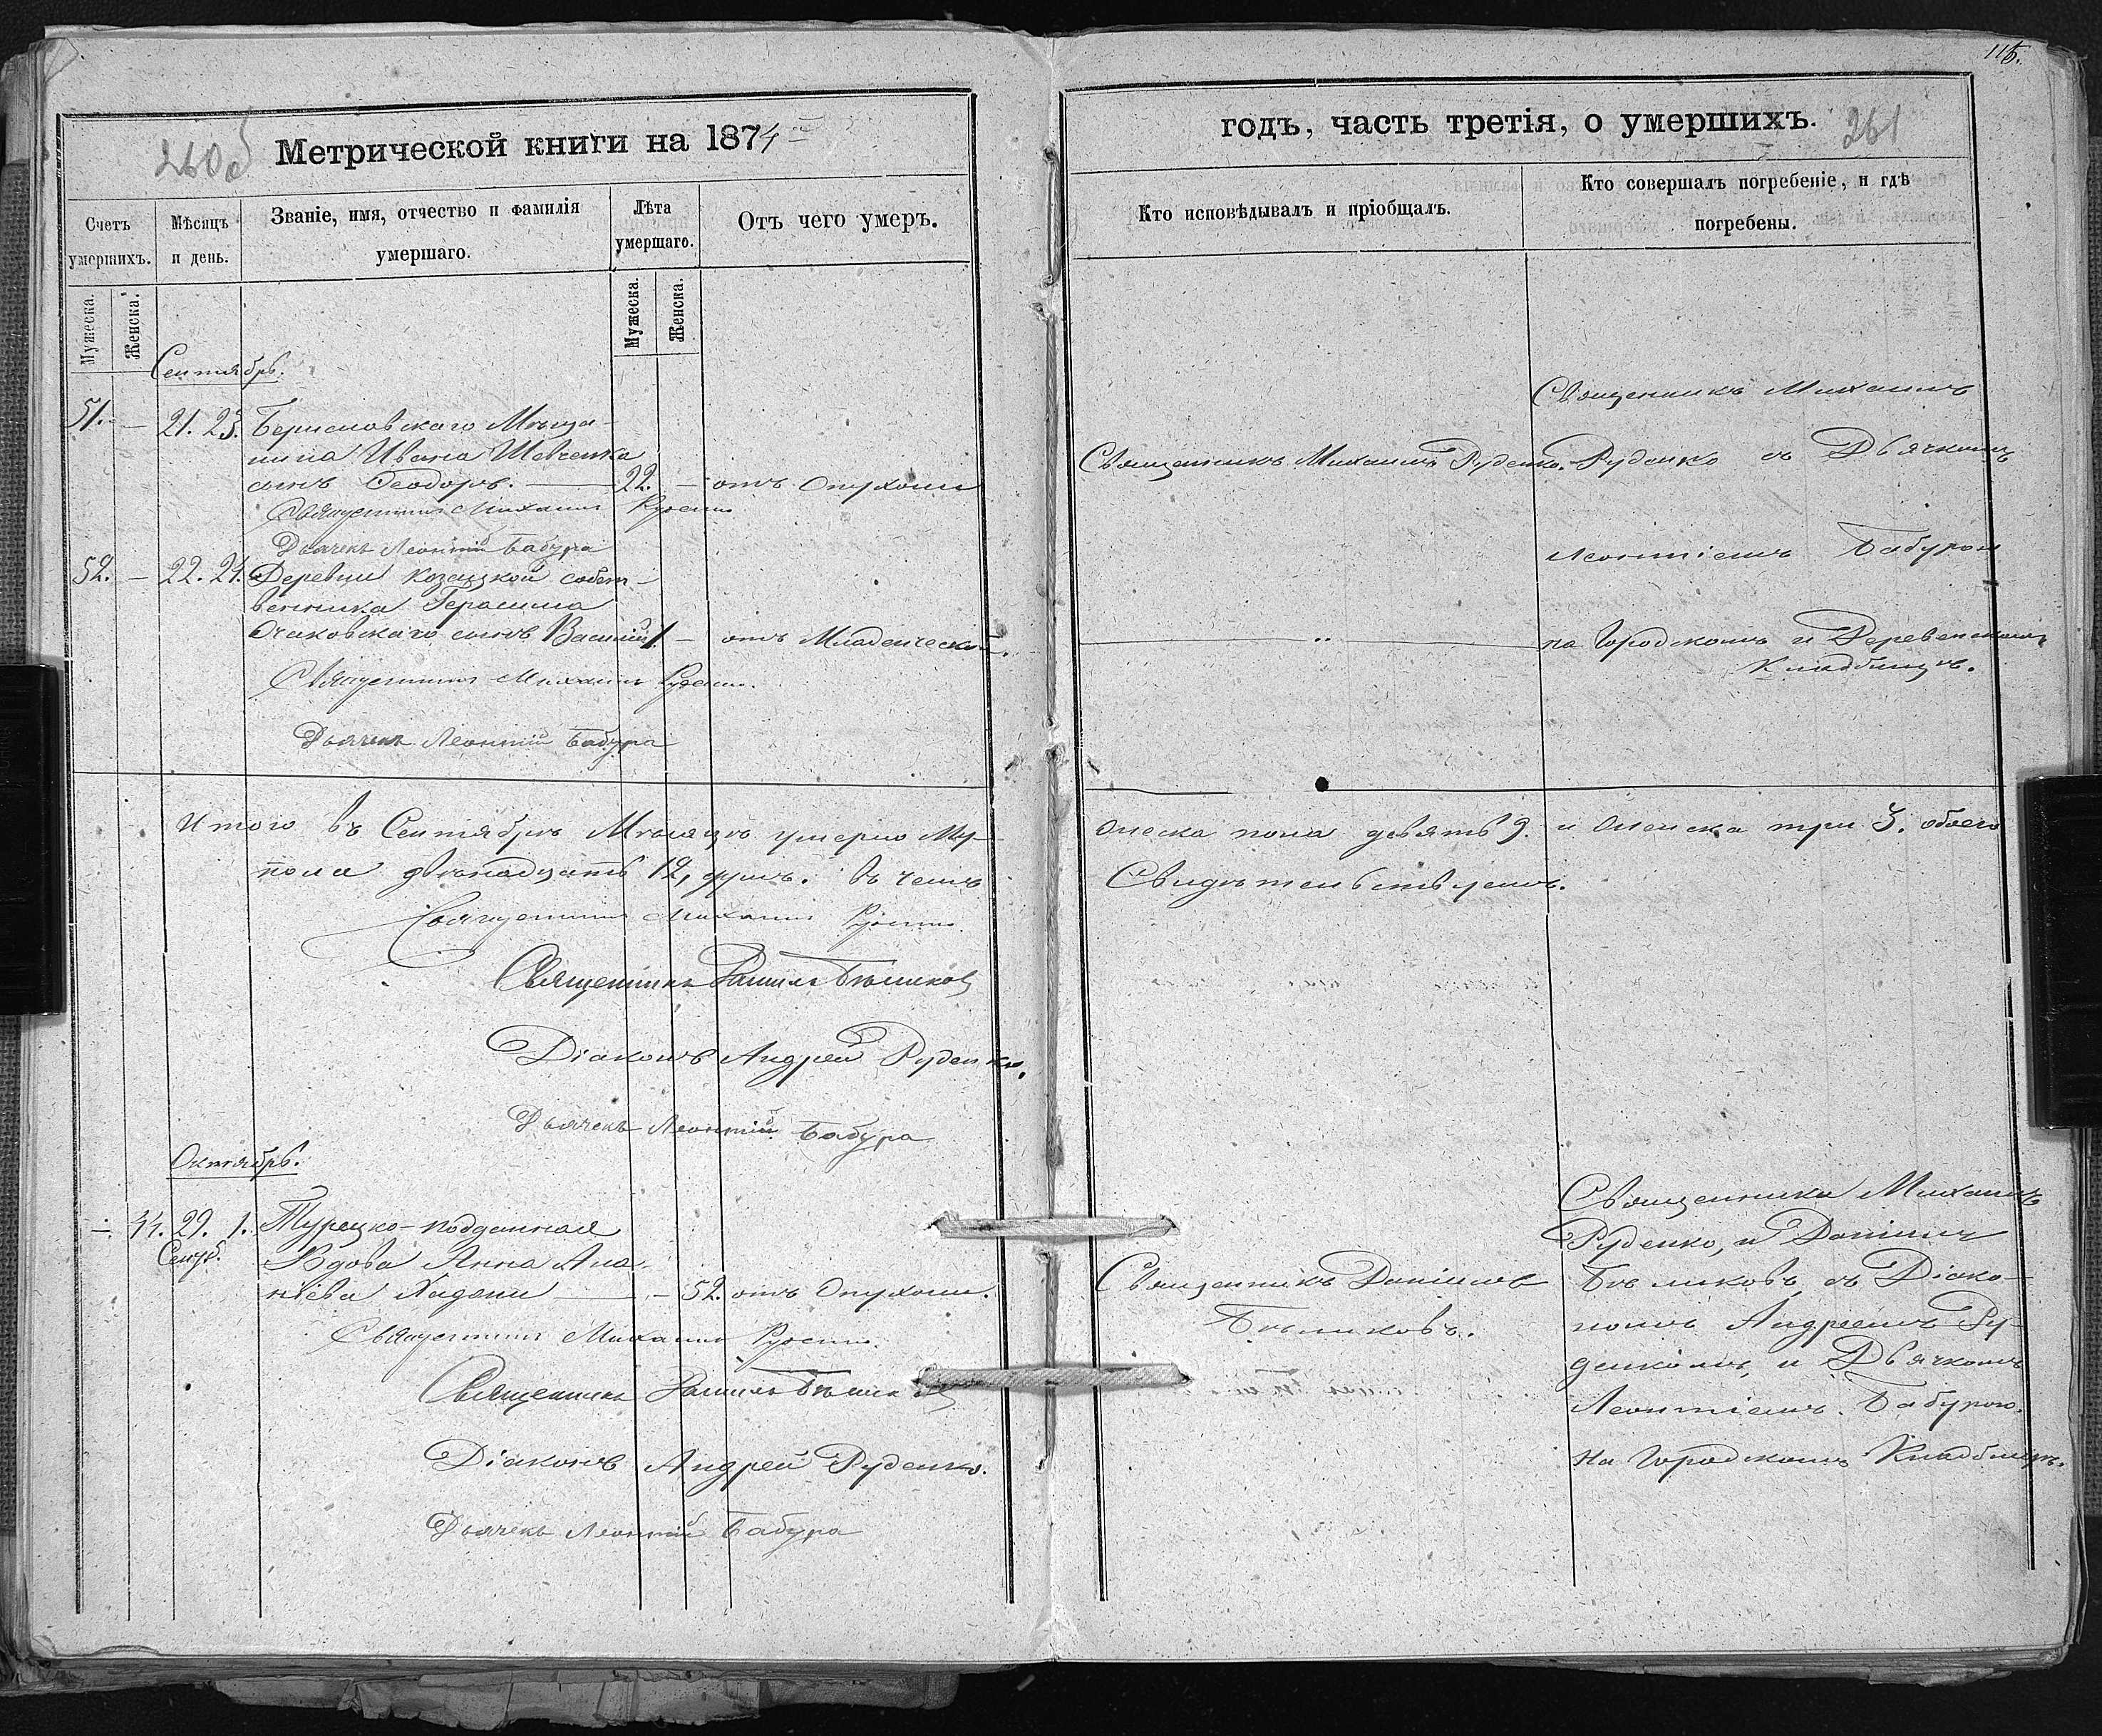 260 об
Метрической книги на 1874
Счетъ умершихъ.
Мѣсяцъ и день.
Званіе, имя, отчество и фамилія умершаго.
Лѣта умершаго.
Отъ чего умеръ.
Мужеска.
Женска.
Мужеска.
Женска.
Сентябрь.
51. — 21. 23. Бериславскаго Мѣща-
нина Ивана Шевченка
сынъ Ѳеодоръ. — 22. — отъ Опухоли
Священникъ Михаилъ Руденко
Дьячекъ Леонтій Бабура
52. — 22. 24. Деревни Козацкой собст-
венника Герасима
Очаковскаго сынъ Василій 1. — отъ Младенческой.
Священникъ Михаилъ Руденко.
Дьячекъ Леонтій Бабура
Итого въ Сентябрѣ Мѣсяцѣ умерло Му-
пола двѣнадцать 12, душъ. въ чемъ
Священникъ Михаилъ Руденко.
Священникъ Даніилъ Бѣликовъ
Діаконъ Андрей Руденко.
Дьячекъ Леонтій Бабура
Октябрь.
—. 44. 29. 1. Турецко-подданная
Сентб. Вдова Анна Ана
ніева — 52. отъ Опухоли.
Священникъ Михаилъ Руденко.
Священникъ Даніилъ Бѣликовъ
Діаконъ Андрей Руденко.
Дьячекъ Леонтій Бабура
115.
годъ, часть третія, о умершихъ. 261
Кто исповѣдывалъ и пріобщалъ.
Кто совершалъ погребеніе, и гдѣ
погребены.
Священникъ Михаилъ
Священникъ Михаилъ Руденко. Руденко съ Дьячкомъ
Леонтіемъ Бабурою
на Городскомъ и Деревенскомъ
Кладбищѣ.
жеска пола девять 9. и Женска три 3. обоего
Свидѣтельствуемъ.
Священники Михаилъ
Руденко, и Даніилъ
Священникъ Даніилъ Бѣликовъ съ Діако-
Бѣликовъ. номъ Андреемъ Ру-
денкомъ, и Дьячкомъ
Леонтіемъ Бабурою.
на Городскомъ Кладбищѣ.